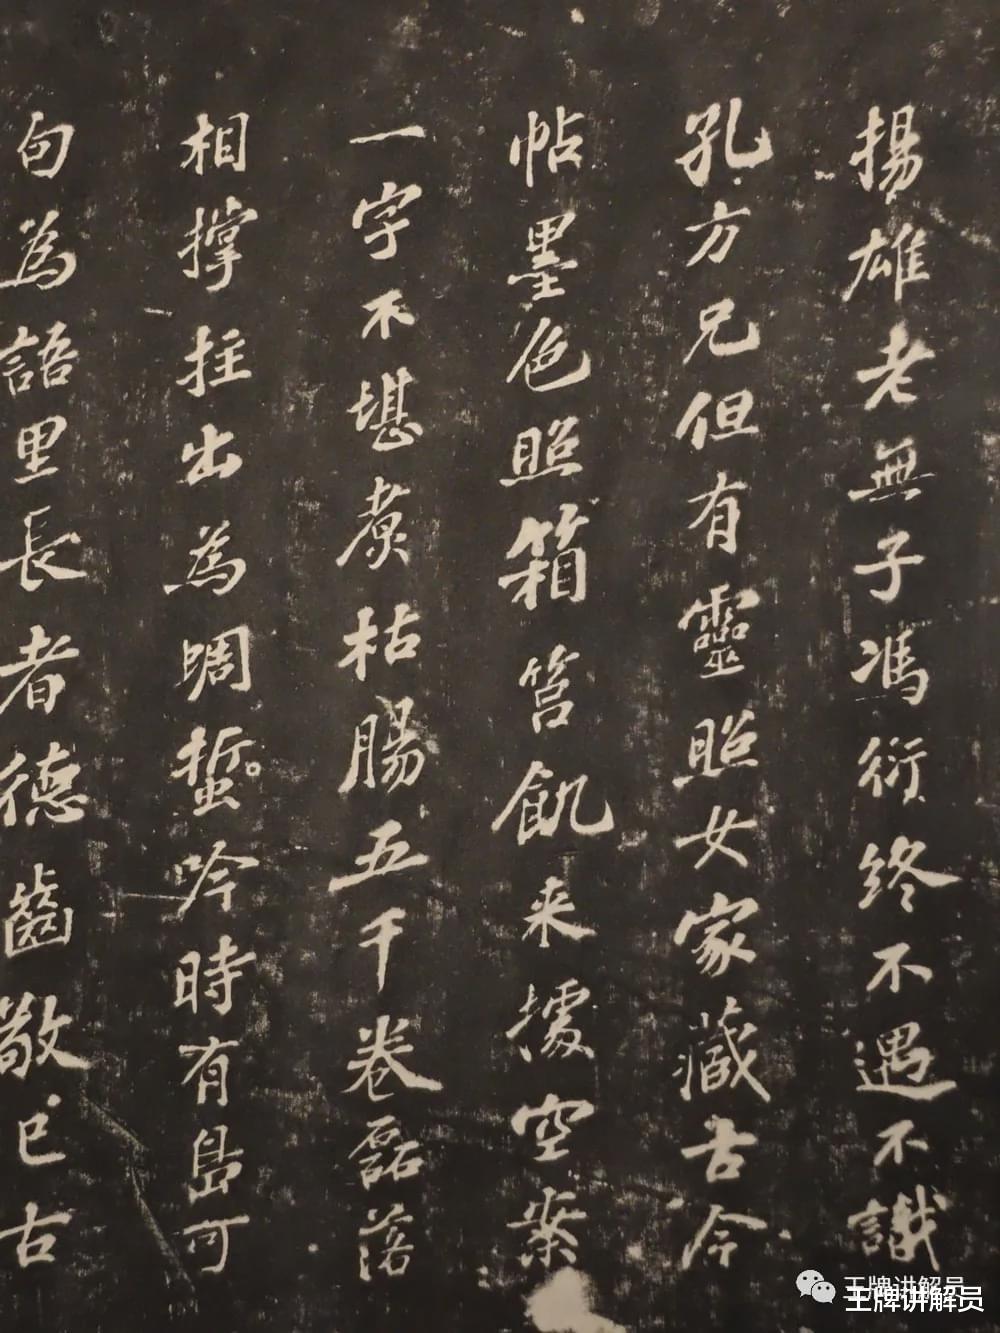 揚雄老無子馮衍終不遇不識
孔方兄但有靈照女家藏古今
帖墨色照箱筥飢来據空案
一字不堪煑枯腸五千卷磊落
相撑拄出為蜩蜇吟時有島可
句為語里長者德齒敬已古
王牌讲解员
王牌讲解员